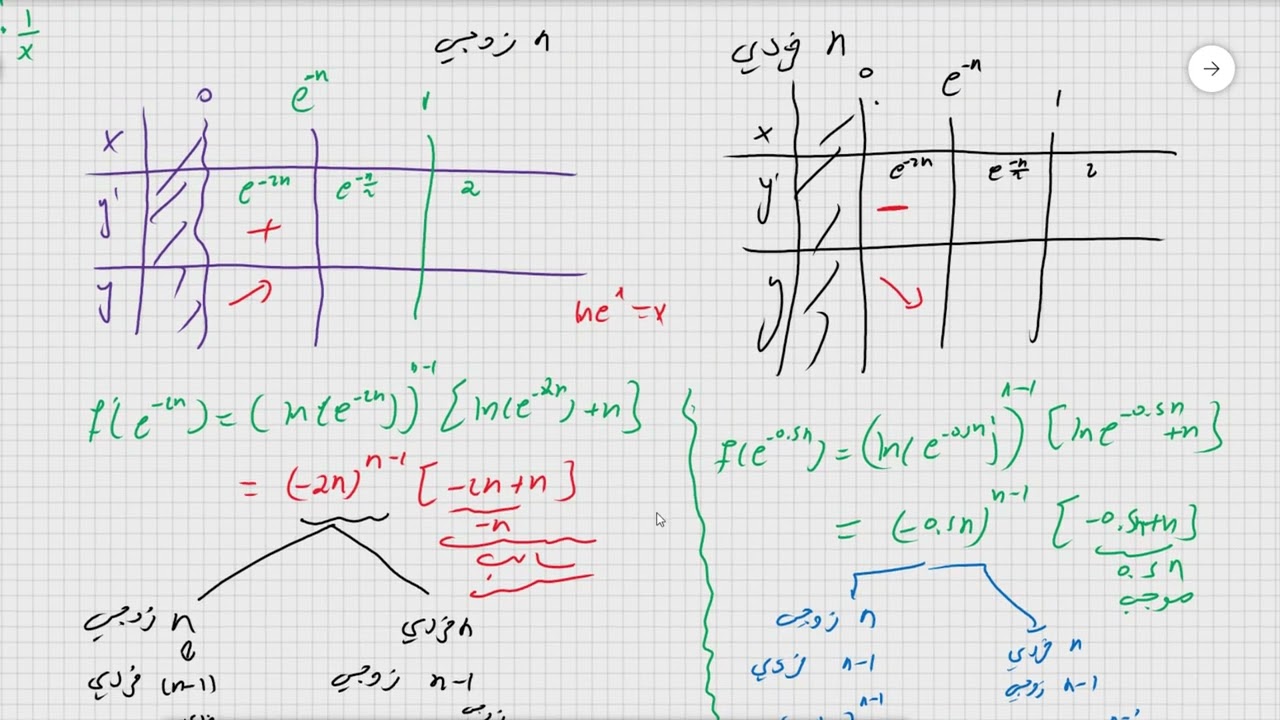 . 1/x
n زوجي
0 e^-n 1
x
y' e^-2n e^-n/2 2
+
y
ln e^x = x
n فردي
0 e^-n 1
x
y' e^-2n e^-n/2 2
−
y
f'(e^-2n) = (ln(e^-2n))^n-1 [ln(e^-2n) + n]
= (-2n)^n-1 [-2n+n]
-n
سالب
n زوجي
(n-1) فردي
n فردي
n-1 زوجي
f'(e^-0.5n) = (ln(e^-0.5n))^n-1 [ln e^-0.5n + n]
= (-0.5n)^n-1 [-0.5n+n]
0.5n
موجب
n زوجي
n-1 فردي
n فردي
n-1 زوجي